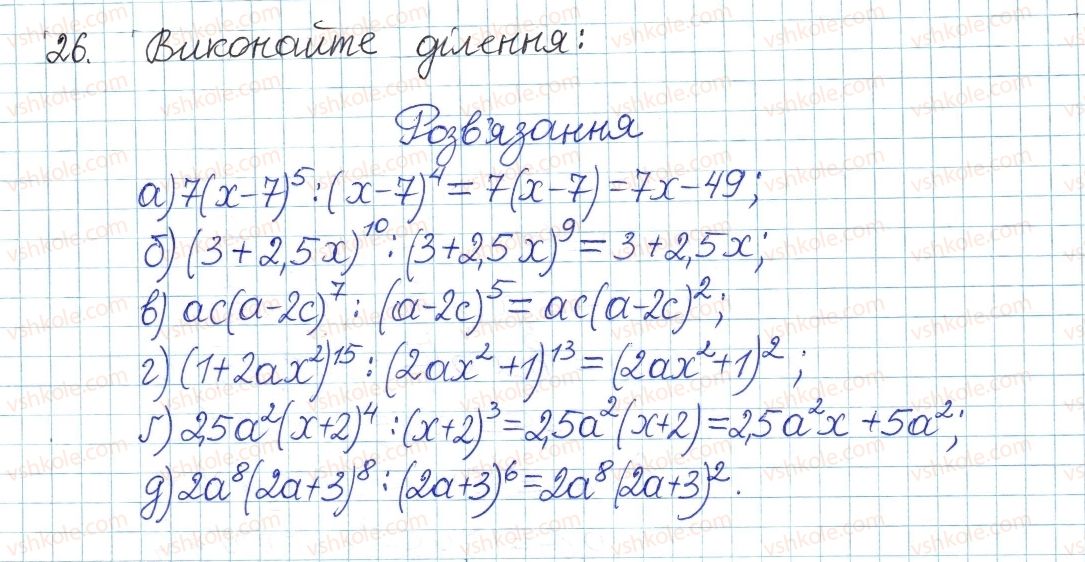 26. Виконайте ділення:
Розв'язання
а) 7(x-7)⁵:(x-7)⁴=7(x-7)=7x-49;
б) (3+2,5x)¹⁰:(3+2,5x)⁹=3+2,5x;
в) ac(a-2c)⁷:(a-2c)⁵=ac(a-2c)²;
г) (1+2ax²)¹⁵:(2ax²+1)¹³=(2ax²+1)²;
ґ) 2,5a²(x+2)⁴:(x+2)³=2,5a²(x+2)=2,5a²x+5a²;
д) 2a⁸(2a+3)⁸:(2a+3)⁶=2a⁸(2a+3)².